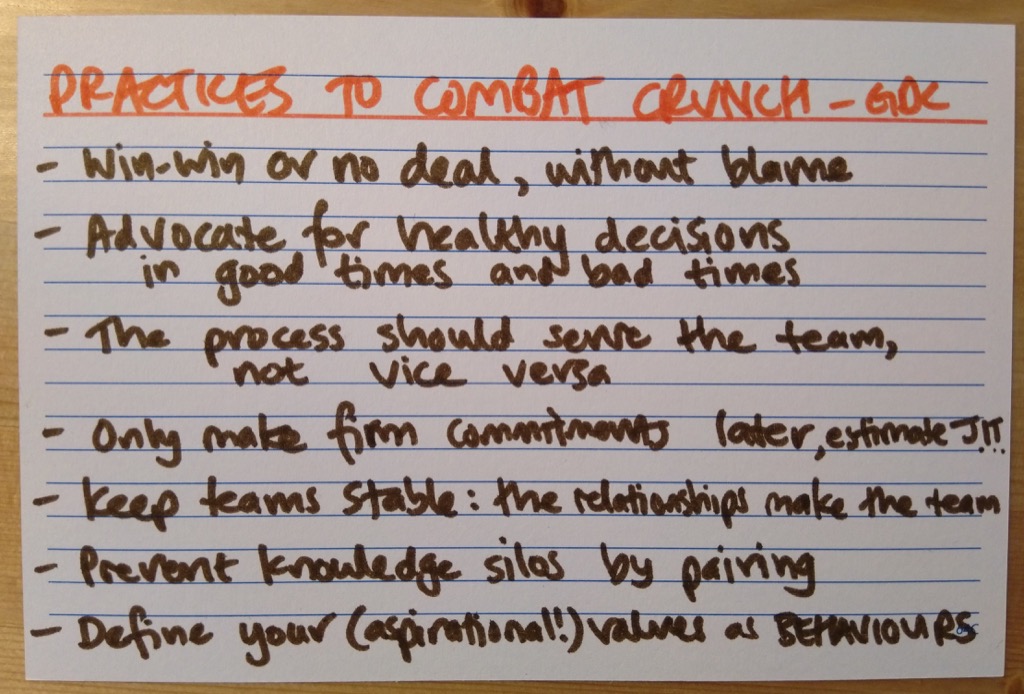 PRACTICES TO COMBAT CRUNCH - GDC
- Win-win or no deal, without blame
- Advocate for healthy decisions
in good times and bad times
- The process should serve the team,
not vice versa
- Only make firm commitments later, estimate J.I.T.
- Keep teams stable: the relationships make the team
- Prevent knowledge silos by pairing
- Define your (aspirational!) values as BEHAVIOURS